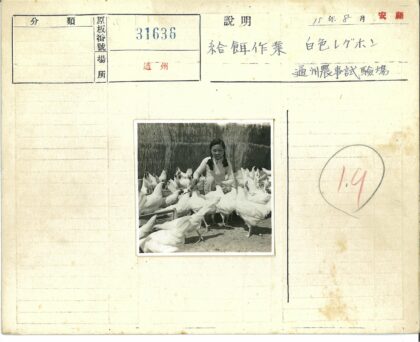 分類
原板番號 31636
場所 通州
説明
15年8月
給餌作業 白色レグホン
通州農事試驗場
19